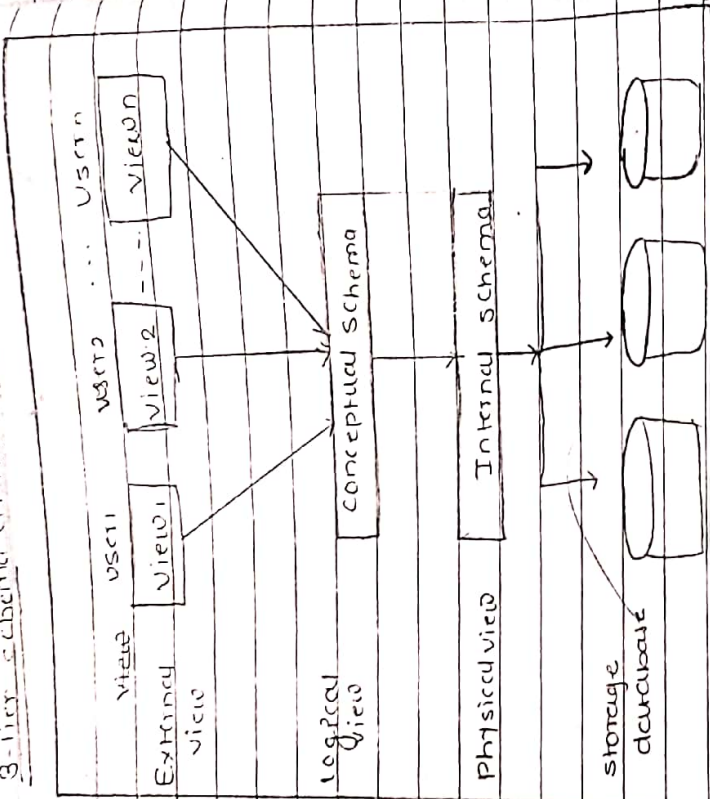 3-Tier schema
user1 user2 ... usern
view
View1 View2 ---- Viewn
External
view
Logical
view
Conceptual Schema
Physical view
Internal schema
storage
database